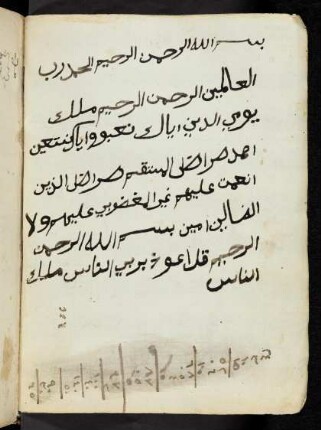 بسم الله الرحمن الرحيم الحمد رب
العالمين الرحمن الرحيم ملك
يومي الدين اياك نعبوو واياك نتعين
احمد صراطى المتقيم صراطى الذين
انعمت عليهم غير المغضوبي عليهم ولا
الضالين امين بسم الله الرحمن
الرحيم قل اعوذ بربي الناس ملك
الناس